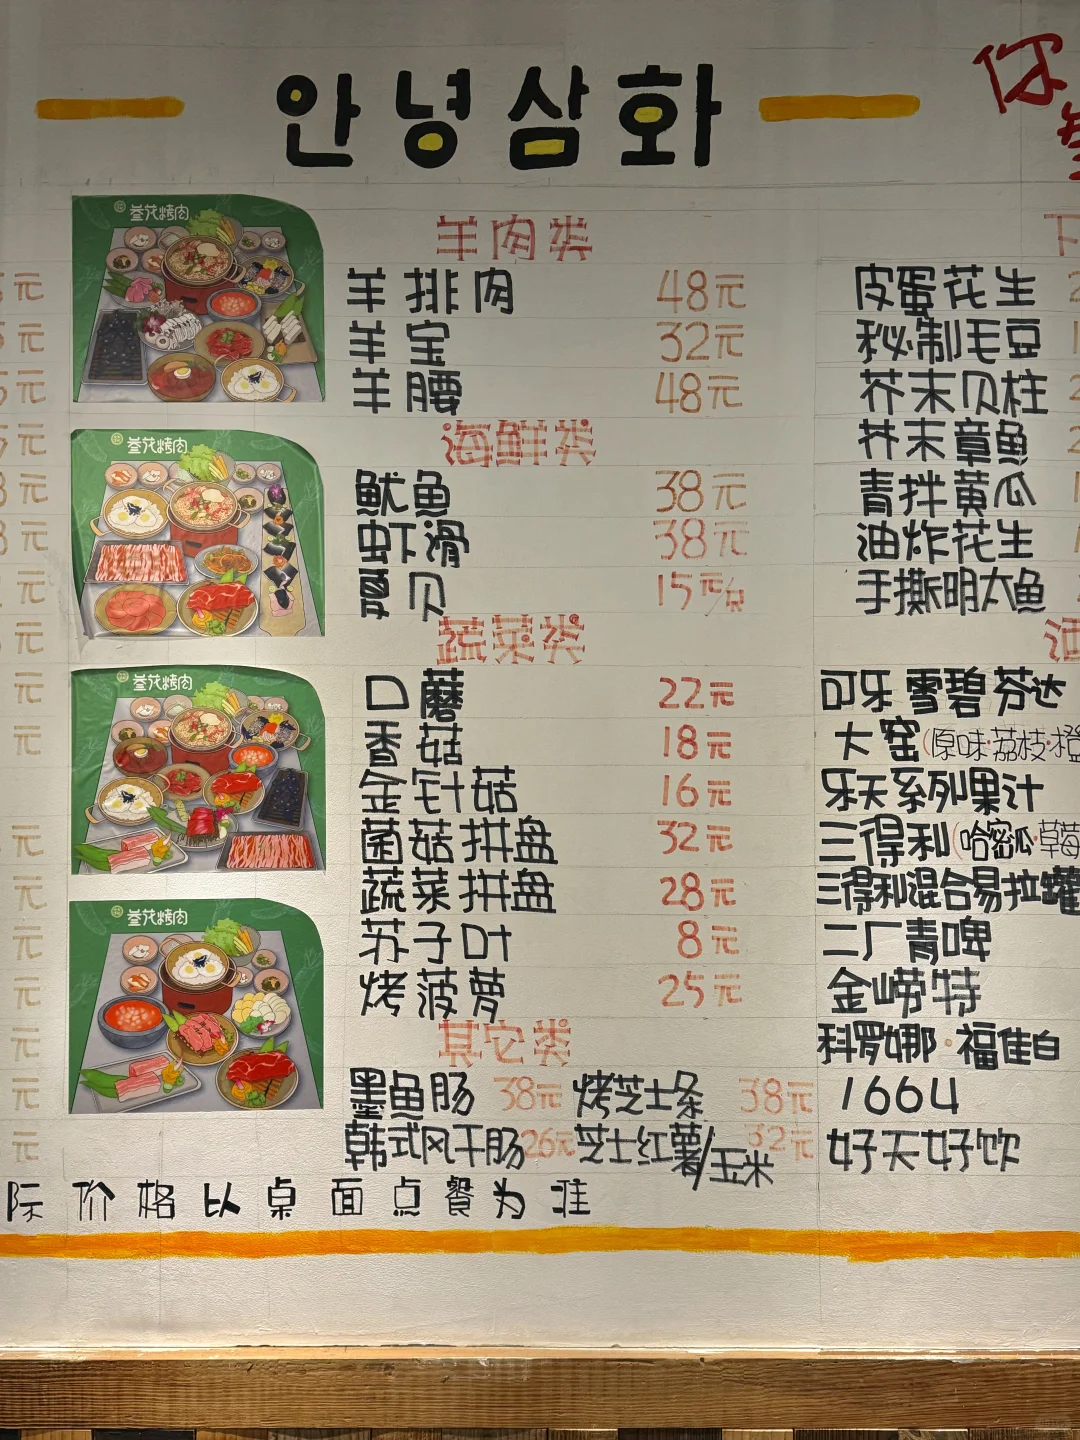 안녕삼화
你
叁花烤肉
羊肉类
羊排肉 48元
羊宝 32元
羊腰 48元
叁花烤肉
海鲜类
鱿鱼 38元
虾滑 38元
扇贝 15元/只
蔬菜类
叁花烤肉
口蘑 22元
香菇 18元
金针菇 16元
菌菇拼盘 32元
蔬菜拼盘 28元
苏子叶 8元
烤菠萝 25元
叁花烤肉
其它类
墨鱼肠 38元 烤芝士条 38元
韩式风干肠 26元 芝士红薯/玉米 32元
皮蛋花生
秘制毛豆
芥末贝柱
芥末章鱼
青拌黄瓜
油炸花生
手撕明太鱼
可乐 雪碧 芬达
大窑(原味·荔枝·橙
乐天系列果汁
三得利(哈密瓜·草莓
三得利混合易拉罐
二厂青啤
金崂特
科罗娜·福佳白
1664
好天好饮
际价格以桌面点餐为准